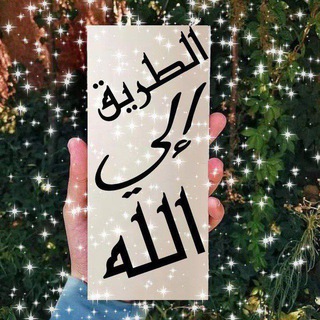 الطريق
إلي
الله